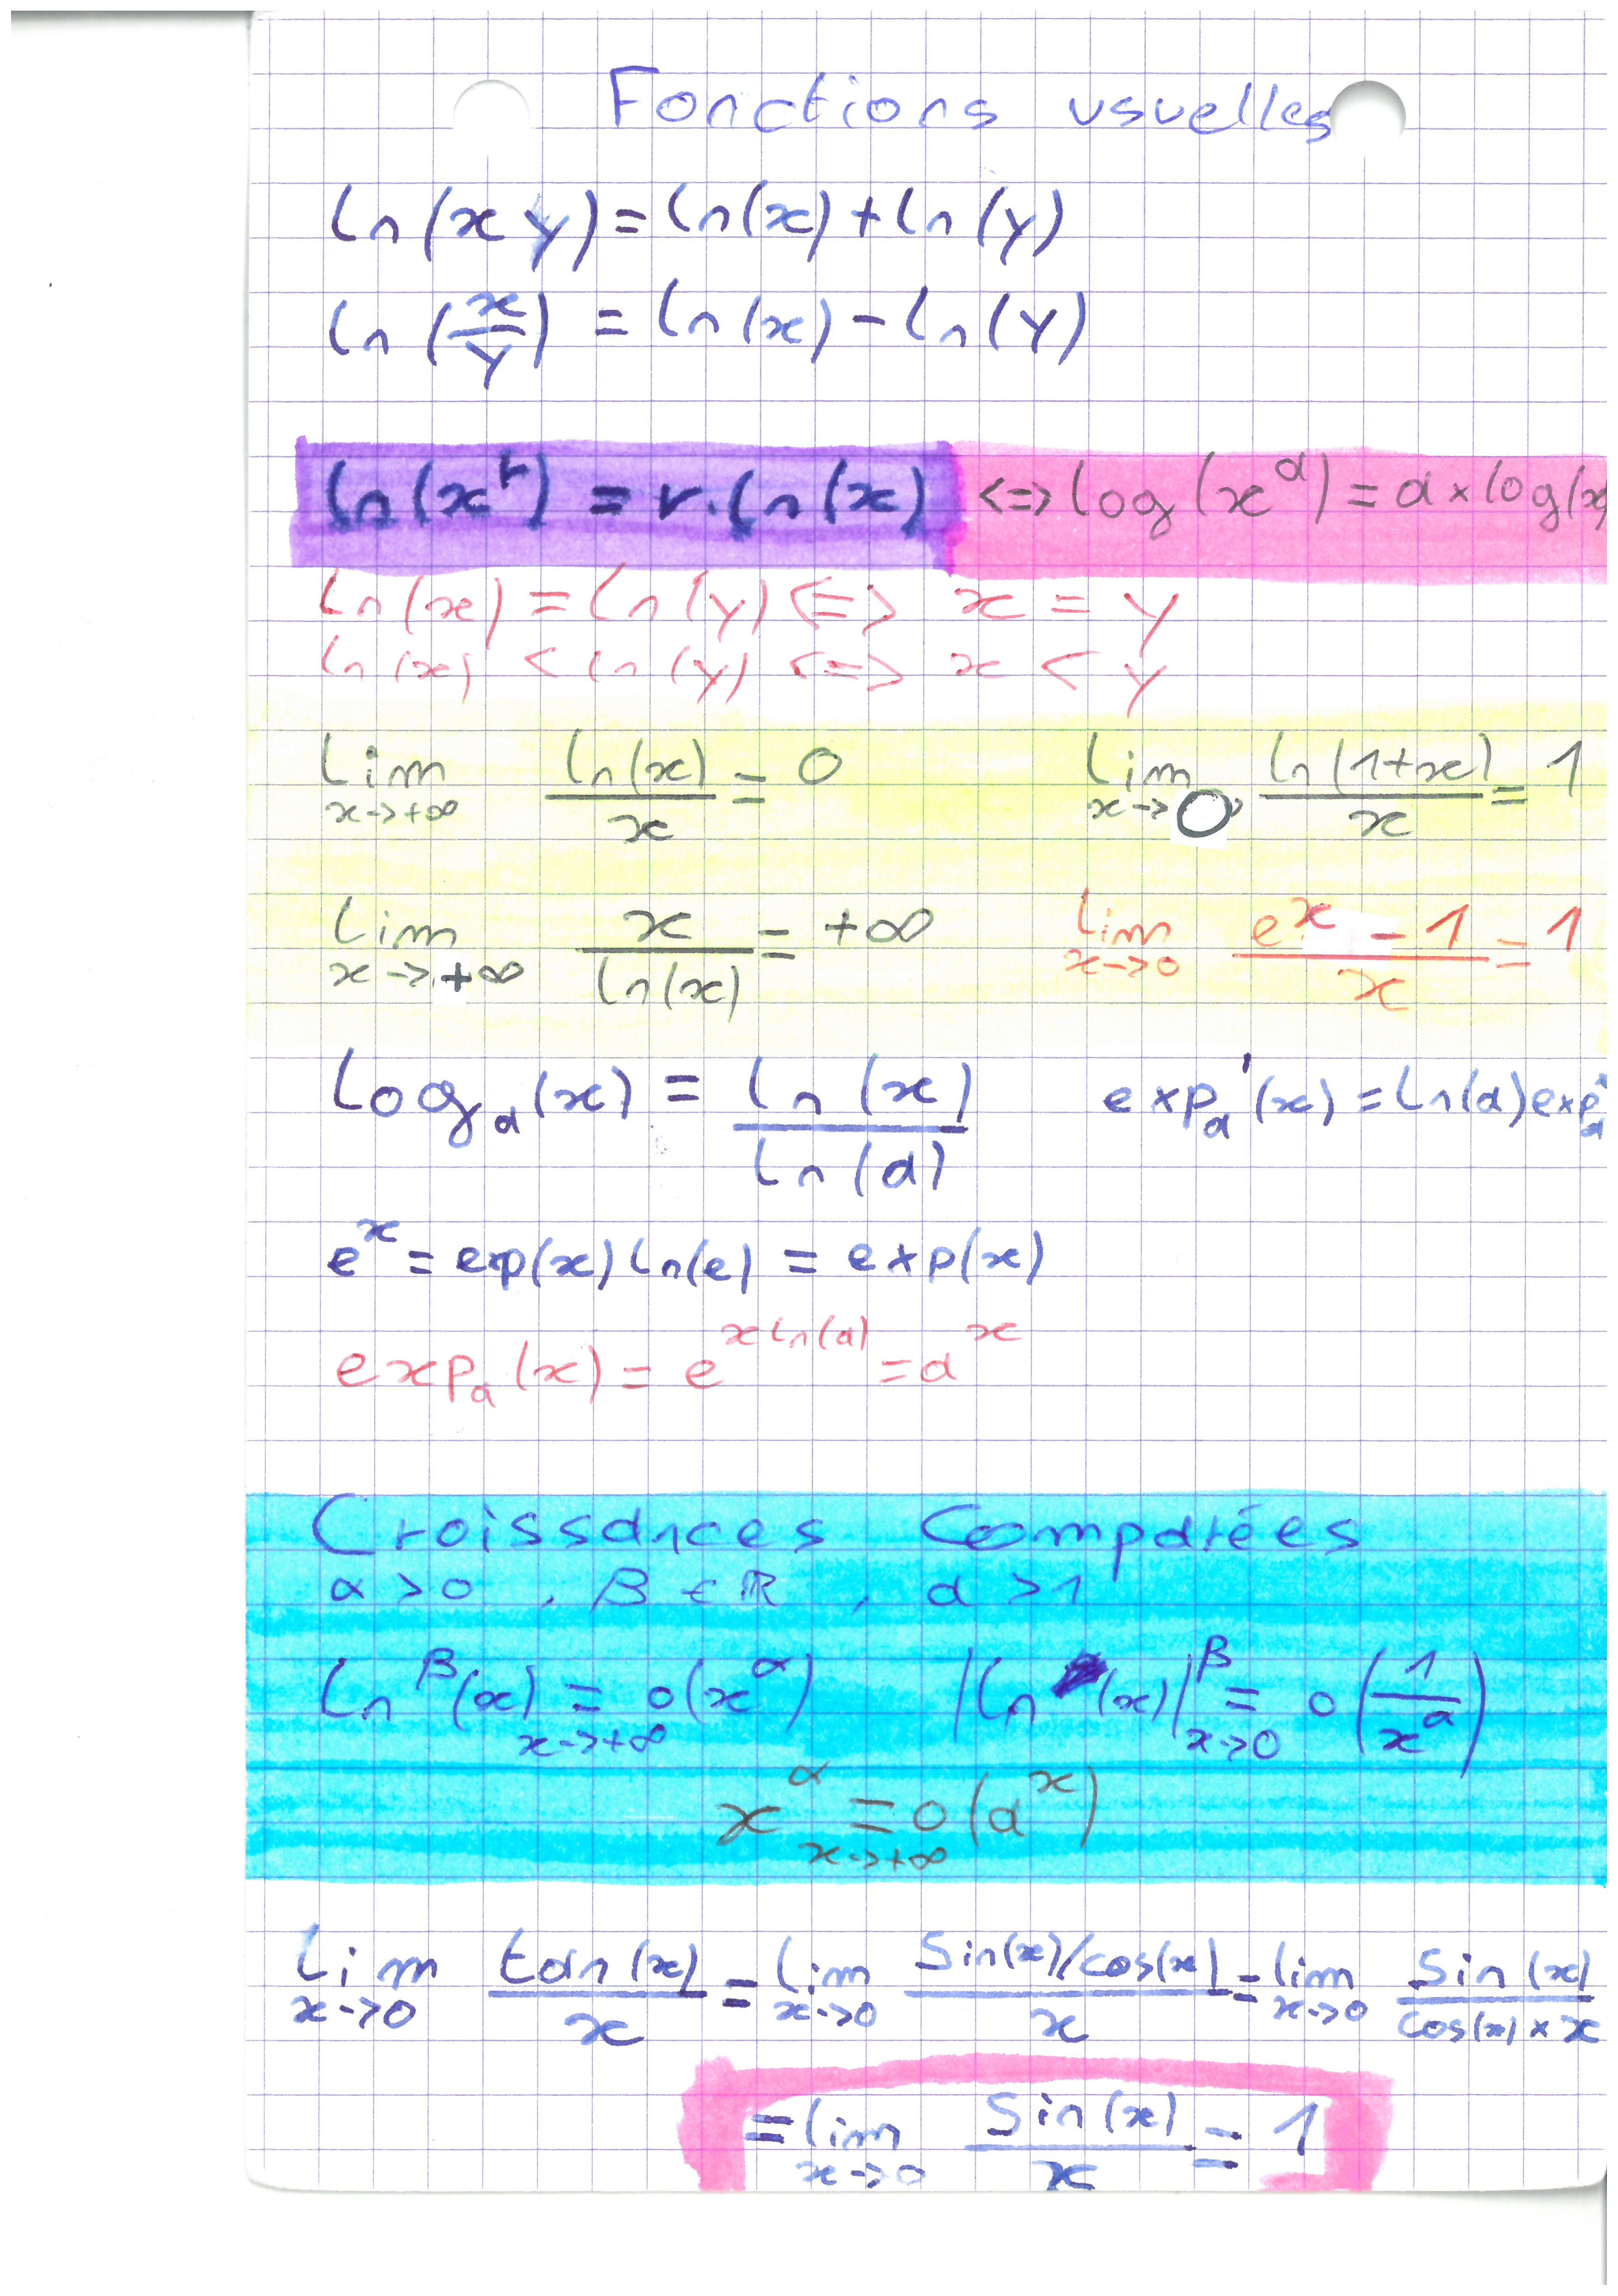 Fonctions usuelles
ln(xy) = ln(x) + ln(y)
ln(x/y) = ln(x) - ln(y)
ln(x^r) = r.ln(x) <=> log(x^a) = a × log(x)
ln(x) = ln(y) <=> x = y
ln(x) < ln(y) <=> x < y
Lim x->+∞ ln(x)/x = 0 Lim x->0 ln(1+x)/x = 1
Lim x->+∞ x/ln(x) = +∞ Lim x->0 (e^x - 1)/x = 1
log_a(x) = ln(x)/ln(a) exp_a'(x) = ln(a) exp_a
e^x = exp(x) ln(e) = exp(x)
exp_a(x) = e^(x ln(a)) = a^x
Croissances Comparées
α > 0 , β ∈ ℝ , a > 1
ln^β(x) =_(x->+∞) o(x^α) |ln(x)|^β =_(x->0) o(1/x^a)
x^α =_(x->+∞) o(a^x)
Lim x->0 tan(x)/x = Lim x->0 (sin(x)/cos(x))/x = lim x->0 sin(x)/(cos(x) × x)
= lim x->0 sin(x)/x = 1